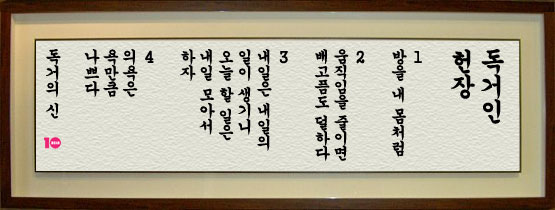 독거인
헌장
1
방을 내 몸처럼
2
움직임을 줄이면
배고픔도 덜하다
3
내일은 내일의
일이 생기니
오늘 할 일은
내일 모아서
하자
4
의욕은
욕만큼
나쁘다
독거의 신
10